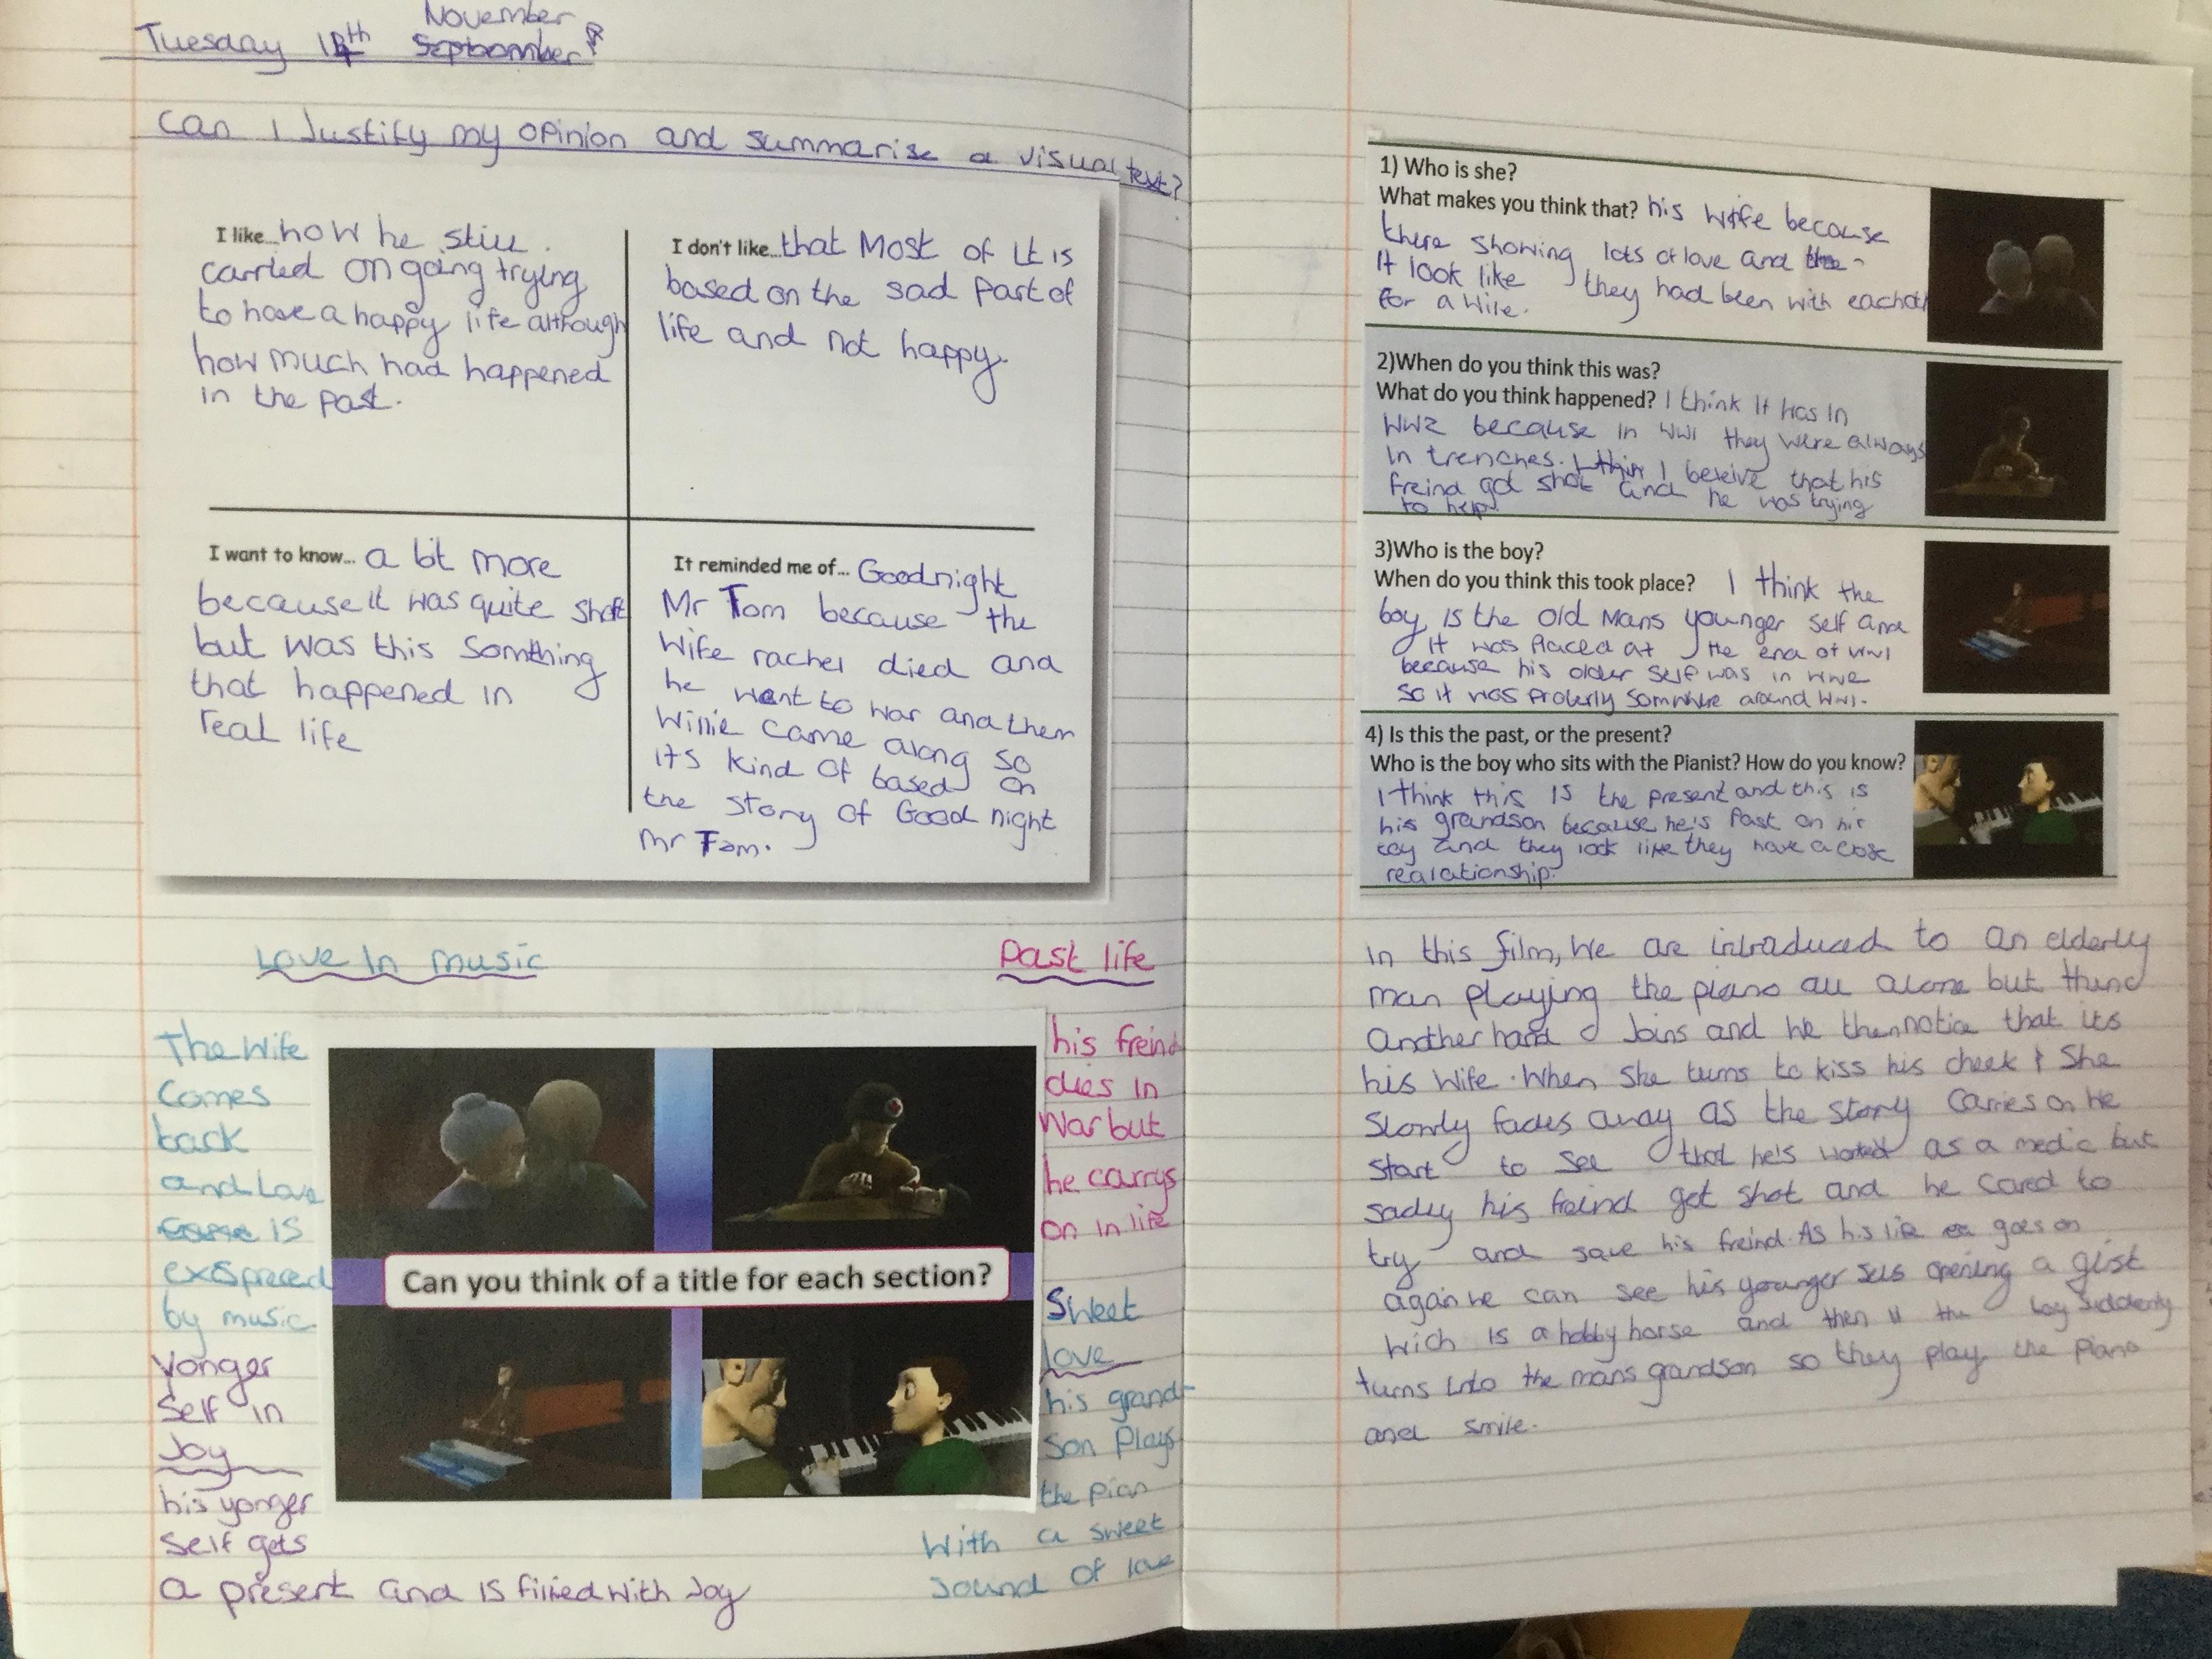 November
Tuesday 14th September
Can I Justify my opinion and summarise a visual text?
I like... how he still
carried on going trying
to have a happy life although
how much had happened
in the past.
I don't like... that Most of It is
based on the sad part of
life and not happy.
I want to know... a bit more
because it was quite short
but was this somthing
that happened in
real life
It reminded me of... Goodnight
Mr Tom because the
wife rachel died and
he went to war and then
Willie came along so
its kind of based on
the story of Good night
Mr Tom.
Love In music
The wife
comes
back
and Love
is
by music
Past life
his freind
dies in
war but
he carrys
on in life
Can you think of a title for each section?
Yonger
Self in
Joy
his yonger
self gets
a present and is filled with Joy
Sweet
love
his grand-
son Plays
the pian
with a sweet
sound of love
1) Who is she?
What makes you think that? his wife because
there showing lots of love and the
It look like they had been with eachoth
for a wile.
2)When do you think this was?
What do you think happened? I think It was In
WW2 because in WW1 they were always
In trenches. I thin I beleive that his
freind got shot and he was trying
to help.
3)Who is the boy?
When do you think this took place? I think the
boy is the old Mans younger self and
It was Placed at the end of WW1
because his older self was in WW2
so it was proberly somwhere around WW1.
4) Is this the past, or the present?
Who is the boy who sits with the Pianist? How do you know?
I think this is the present and this is
his grandson because he's Past on his
toy and they look like they have a close
realationship.
In this film, We are intraduced to an elderly
man playing the piano all alone but
Another hand Joins and we then notice that its
his wife. When she turns to kiss his cheek she
slowly fades away as the story carries on we
start to see that he's worked as a medic but
sadly his freind get shot and he cared to
try and save his freind. As his life goes on
again we can see his younger opening a
wich is a hobby horse and then the boy suddenly
turns into the mans grandson so they play the Piano
and smile.